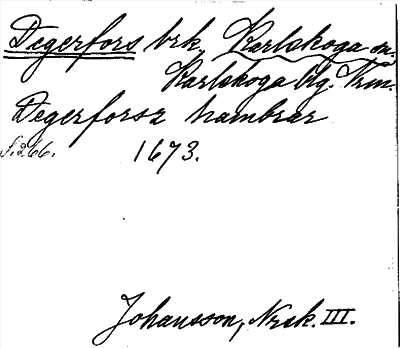 Degerfors brk, Karlskoga sn.
Karlskoga bg. Vrm.
Degerforsz hambrar
s. 266. 1673.
Johansson, Norsk. III.